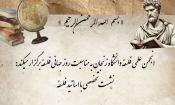 « بسم الله الرحمن الرحیم »
انجمن علمی فلسفه دانشگاه زنجان به مناسبت روز جهانی فلسفه برگزار میکند:
نشست تخصصی با اساتید فلسفه